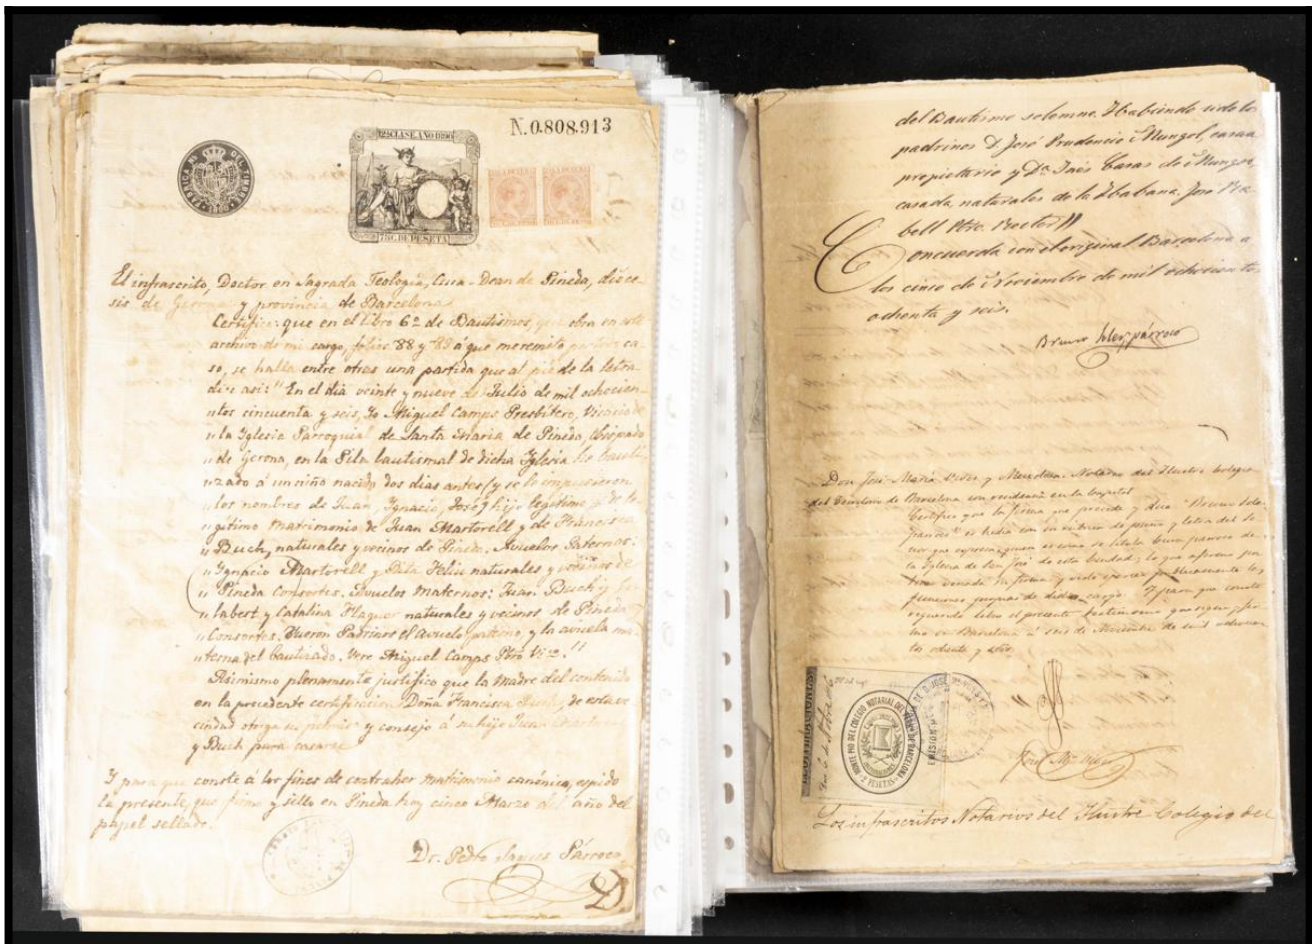 N.0.808.913
12ª CLASE. AÑO 1890
75C. DE PESETA
El infrascrito, Doctor en Sagrada Teología, Cura-Dean de Pineda, dióce-
sis de Gerona y provincia de Barcelona
Certifico: que en el libro 6º de Bautismos, que obra en este
archivo de mi cargo, folios 88 y 89 á que me remito
so, se halla entre otras una partida que al pie de la letra
dice así: "En el dia veinte y nueve de Julio de mil ochocien-
"tos cincuenta y seis, Yo Miguel Camps Presbítero, Vicario de
"la Iglesia Parroquial de Santa Maria de Pineda, Obispado
"de Gerona, en la Pila bautismal de dicha Iglesia he bauti-
"zado á un niño nacido dos dias antes (y se le impusieron
"los nombres de Juan, Ignacio, José) hijo legítimo y de le-
"gítimo matrimonio de Juan Martorell y de Francisca
"Buch, naturales y vecinos de Pineda. Avuelos Paternos:
"Ignacio Martorell y Rita Feliu naturales y vecinos de
"Pineda Consortes. Avuelos Maternos: Juan Buch y
"labert y Catalina Flaquer naturales y vecinos de Pineda
"Consortes. Fueron Padrinos el Avuelo paterno, y la avuela ma-
"terna del bautizado. Vere Miguel Camps Pbro Vic."
Asimismo plenamente justifico que la madre del contenido
en la precedente certificacion Doña Francisca Buch, de esta ve-
cindad otorga su permiso y consejo á su hijo Juan Martorell
y Buch para casarse
Y para que conste á los fines de contraher matrimonio canónico, espido
la presente, que firmo y sello en Pineda hoy cinco Marzo del año del
papel sellado.
Dr. Pedro Párroco
del Bautismo solemne. Habiendo sido los
padrinos D. José Prudencio
propietario y Dª Inés Casas de
casada, naturales de la Habana, José
bell Pbro. Rector
Concuerda con el original. Barcelona a
los cinco de Noviembre de mil ochocientos
ochenta y seis.
Bruno párroco
Don José Maria y Notario del Ilustre Colegio
del de Barcelona con residencia en la
Certifico que la firma que precede y dice Bruno
párroco es hecha
la Iglesia de San José de esta Ciudad, lo que afirmo por
funciones propias de dicho cargo. Y para que conste
requerido libro el presente testimonio que signo y fir-
mo en Barcelona á seis de Noviembre de mil ochocien-
tos ochenta y seis.
MONTE PIO DEL COLEGIO NOTARIAL DEL DE BARCELONA
2 PESETAS
LEGITIMACIONES
Los infrascritos Notarios del Ilustre Colegio del